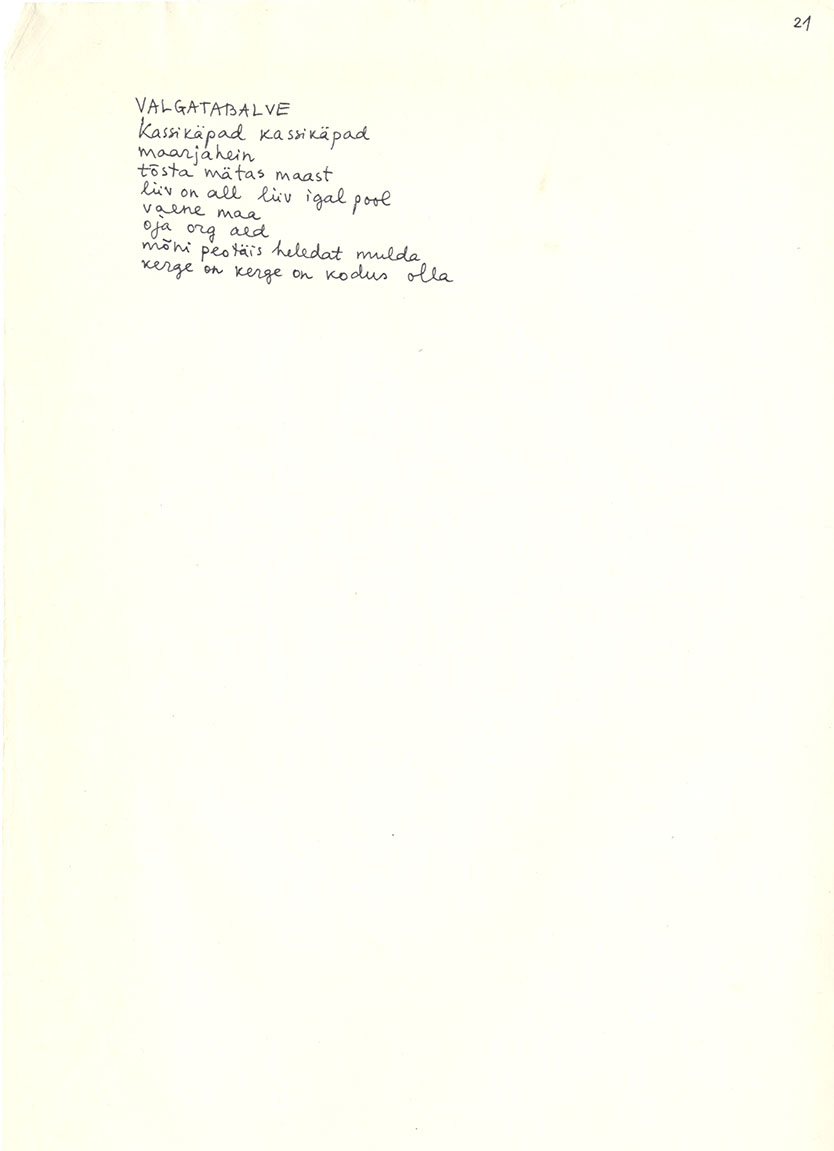 21
VALGATABALVE
Kassikäpad kassikäpad
maarjahein
tõsta mätas maast
liiv on all liiv igal pool
vaene maa
oja org aed
mõni peotäis heledat mulda
kerge on kerge on kodus olla